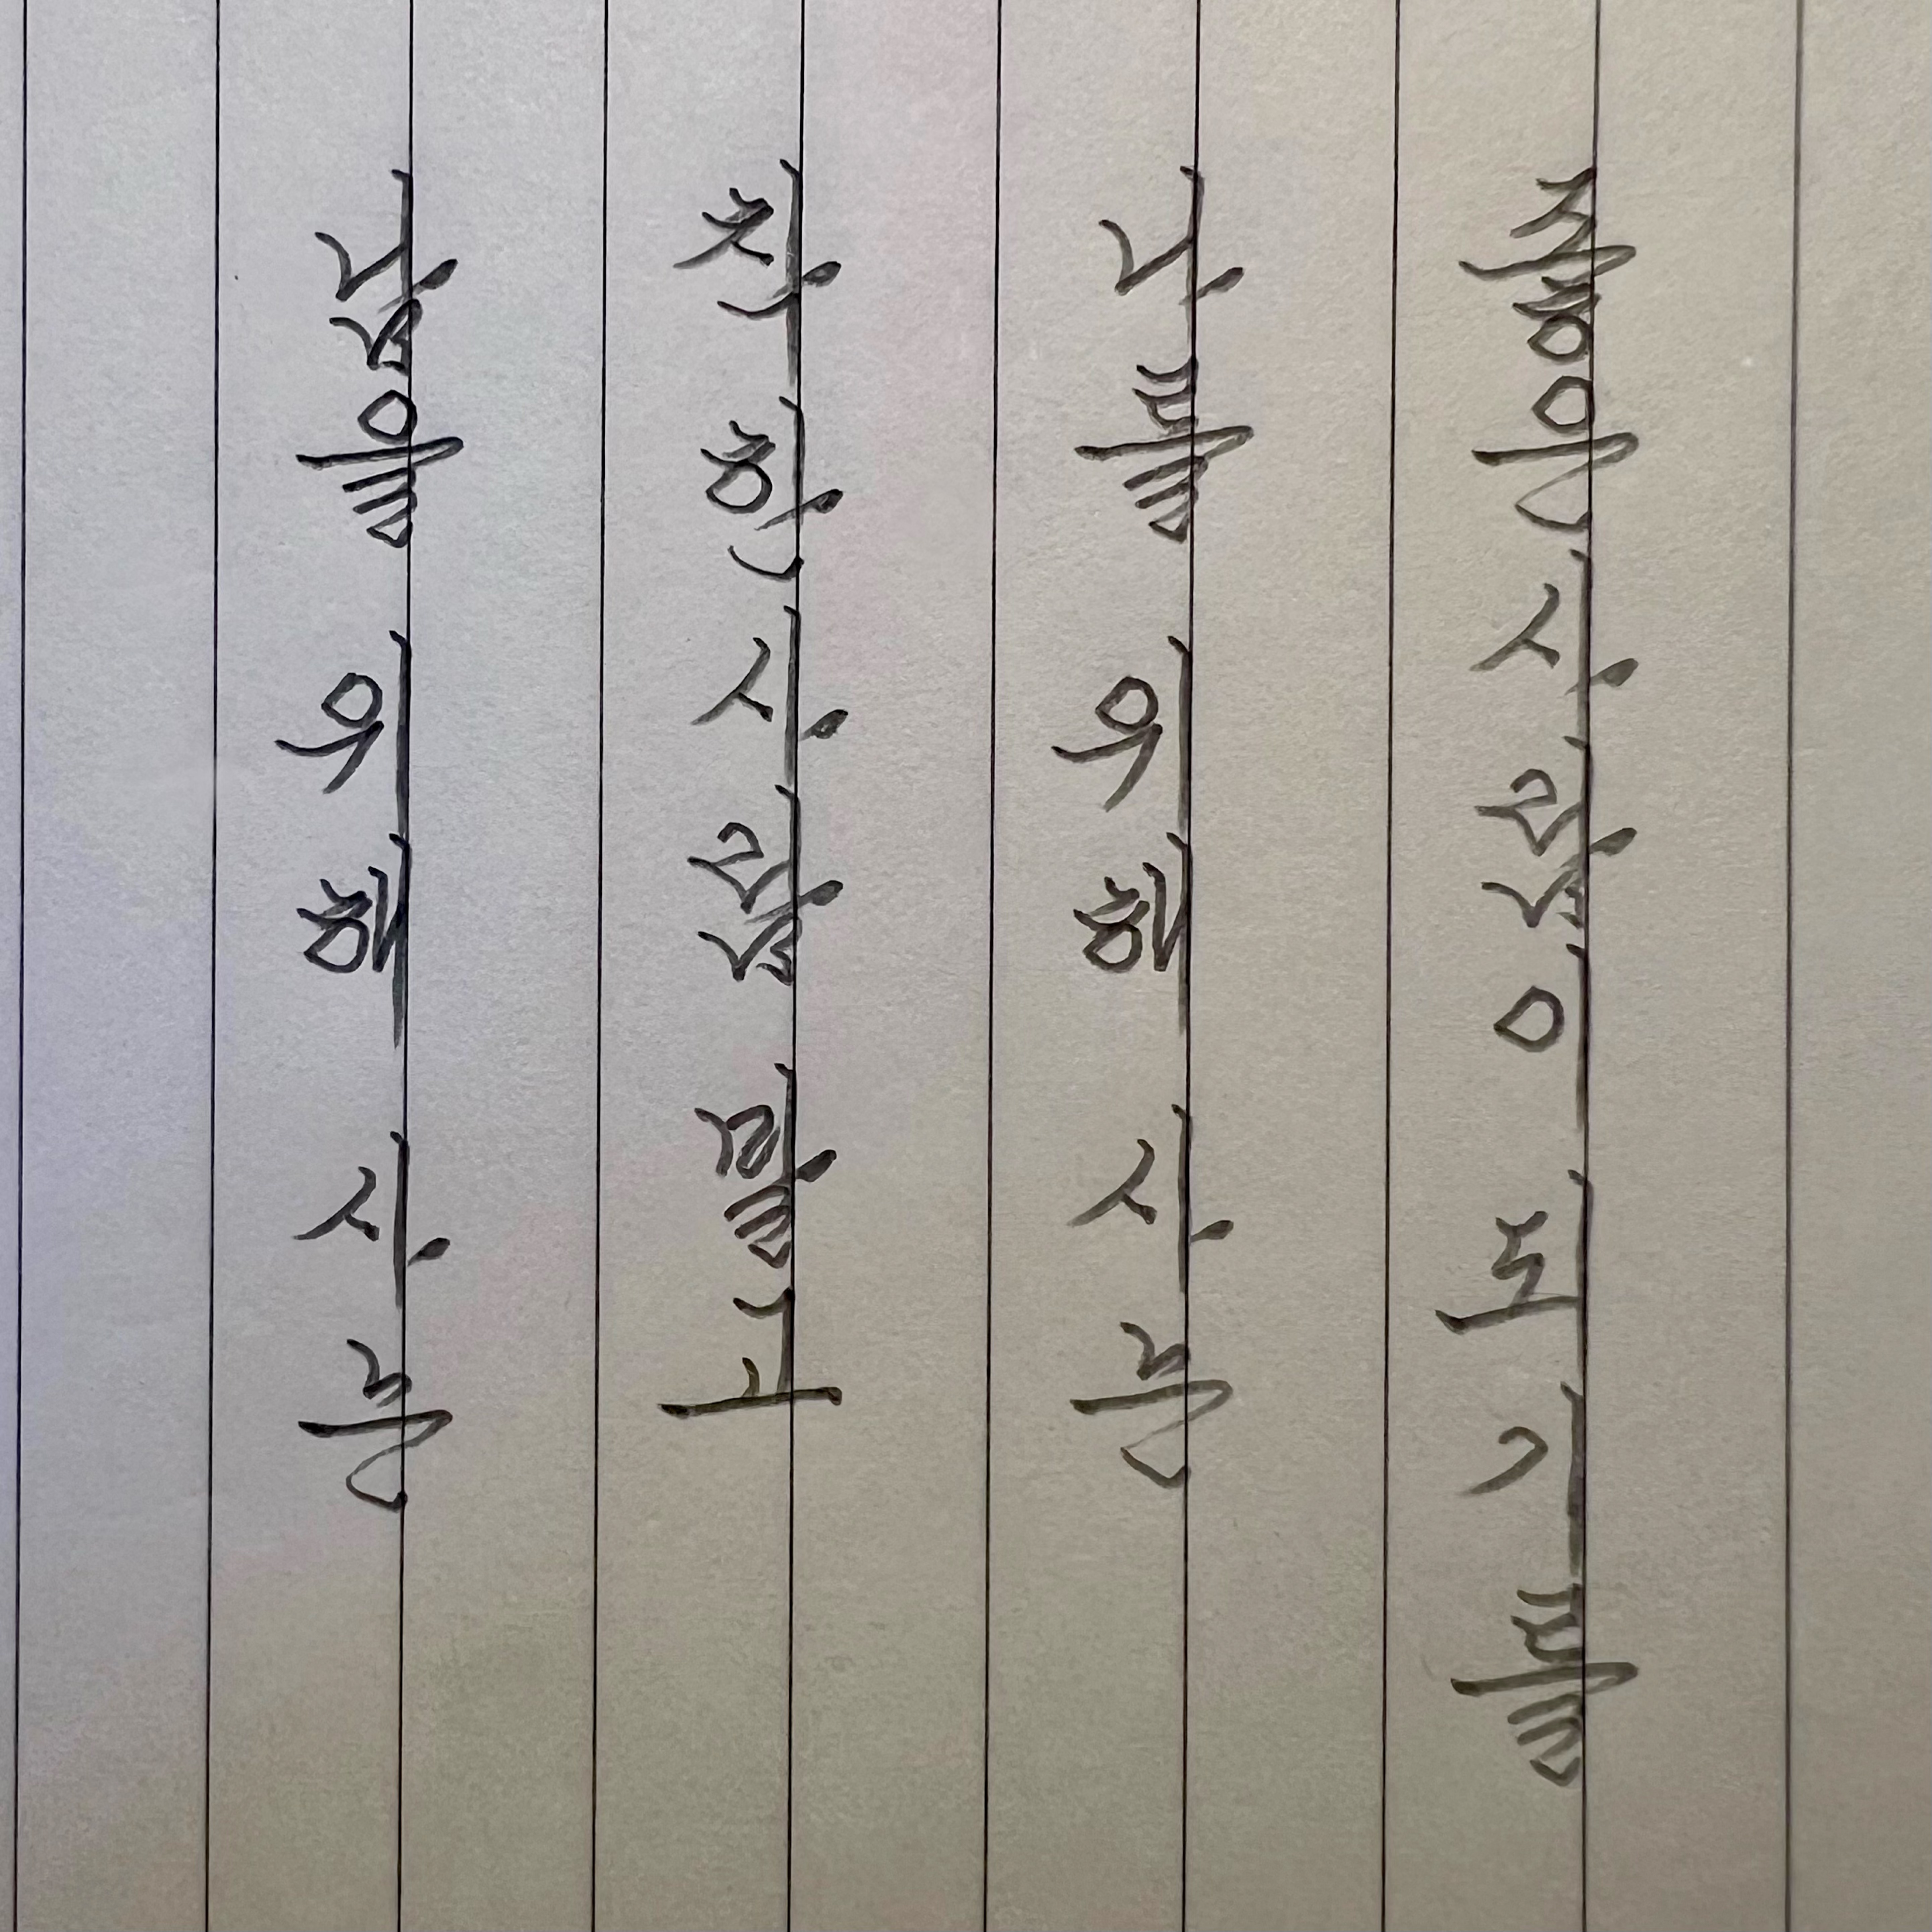 남을 위해 사는
착한 사람 말고
나를 위해 사는
좋은 사람이 되기를